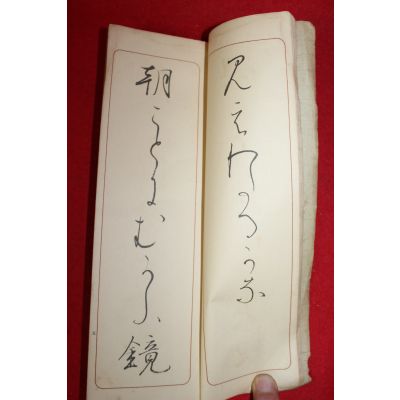 見えわたるかな
朝ことにむかふ鏡